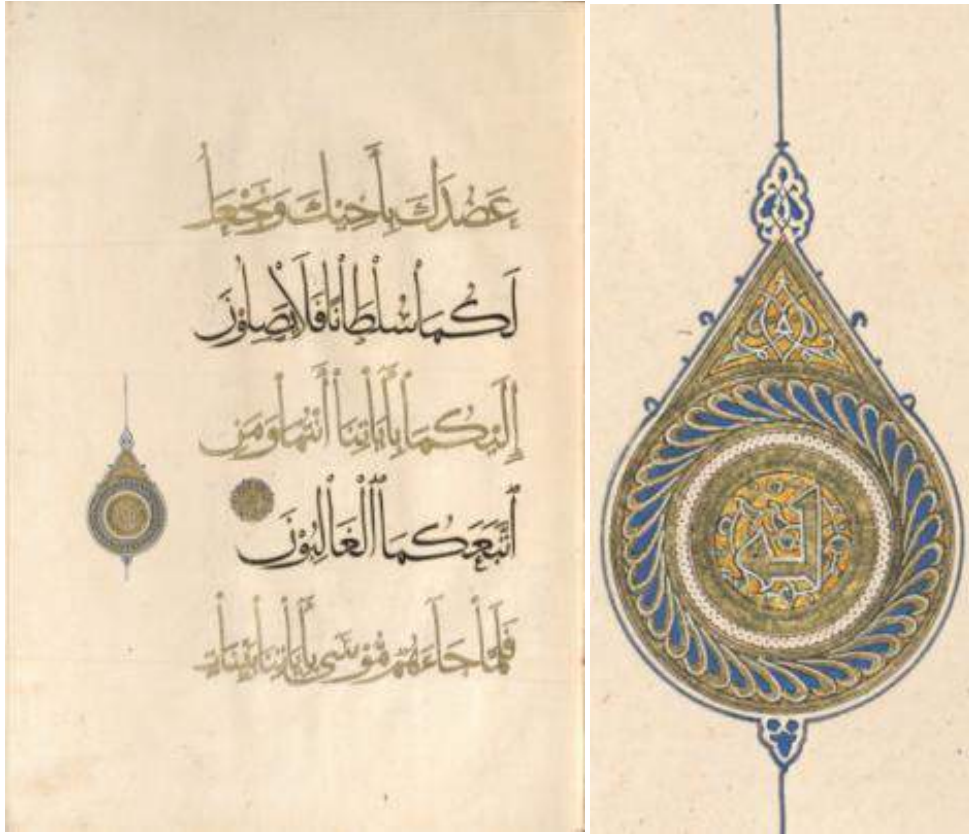 عَضُدَكَ بِأَخِيْكَ وَنَجْعَلُ
لَكُمَا سُلْطَانًا فَلَا يَصِلُوْنَ
إِلَيْكُمَا بِآيَاتِنَا أَنْتُمَا وَمَنِ
ٱتَّبَعَكُمَا ٱلْغَالِبُوْنَ
فَلَمَّا جَاءَهُمْ مُوْسَى بِآيَاتِنَا بَيِّنَاتٍ